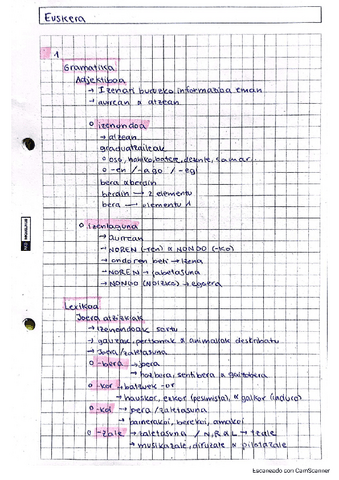 Euskera
1
Gramatika
Adjektiboa
→ Izenari buruzko informatiboa eman
→ aurrean & atzean
o izenondoa
→ atzean
graduatzaileak
o oso, nahiko, batere, dezente, samar...
o -en / -ago / -egi
bera & berdin
berdin → 2 elementu
bera → elementu 1
o izenlaguna
→ aurrean
→ NOREN (-ren) & NONGO (-ko)
→ ondoren beti → izena
→ NOREN → jabetasuna
→ NONGO (NOIZKO) → egoera
Lexikoa
Joera atzizkiak
→ izenondoak sortu
→ gauzak, pertsonak & animaliak deskribatu
→ joera/zaletasuna
o -bera → joera
→ hozbera, sentibera & galtzbera
o -kor → batzuek -or
→ hauskor, ezkor (pesimista), & galkor
o -koi → joera/zaletasuna
→ barnerakoi, berekoi, amakoi
o -zale → zaletasuna / N,R,L → tzale
→ musikazale, diruzale & pilotazale
Escaneado con CamScanner